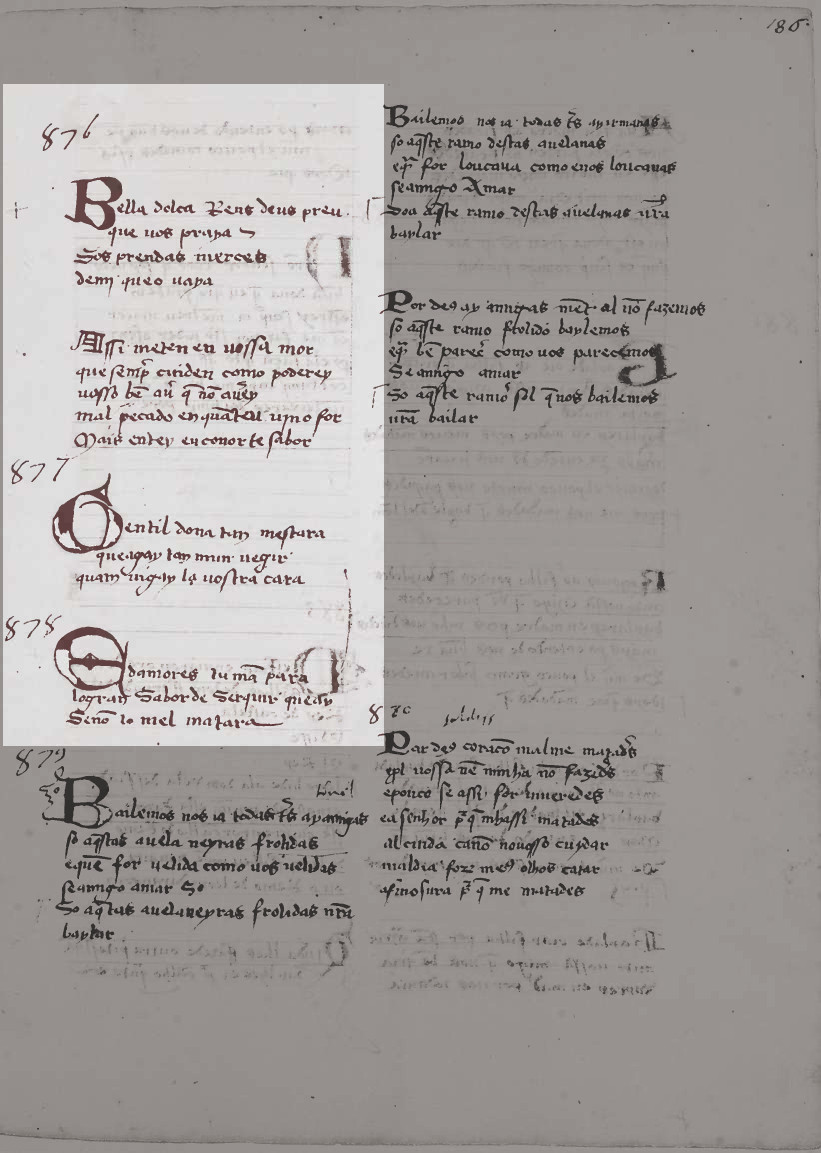 186
876
Bella dolca Rens deus preu.
que uos praya
Sos prendas merces
dem queo uaya
Assi meten en uossa mor
que semp̃ cuiden como poderey
uosso bẽ au̾ q̃ nõ auey
mal pecado en quãteu uyno for
Mais entey euconorte sabor
877
Gentil dona tan mestara
queagay tan mun uegir
quam uigay la uostra cara
878
damores lu mã para
logran Sabor de Seruir queay
Senõ lo mel matara
879
Bailemos nos ia todas tr̃s ay amigas
so aq̃stas auela neyras frolidas
equẽ for uelida como uos uelidas
se amigo amar So
So aq̃tas auelaneyras frolidas uirã
baylar
Bailemos nos ia todas tr̃s ay irmanas
so aq̃ste ramo destas auelanas
eq̃ for loucaua como enos loucauas
se amigo Amar
Soa aq̃ste ramo destas auelanas uirã
baylar
Por de9 ay amigas mẽt al nõ fazemos
so aq̃ste ramo frolido baylemos
eq̃ bẽ parec̃ como uos parecemos
Se amigo amar
So aq̃ste ramo sol q̃ nos bailemos
uirã bailar
880
Par de9 coracõ mal me matades
uossa nẽ minha nõ fazedes
epouco se assi for uiueredes
ea senhor p̃ q̃ mhassi matades
al cuida ca nõ nouosso cuydar
mal dia foz9 me9 olhos catar
afmosura p̃ q̃ me matades